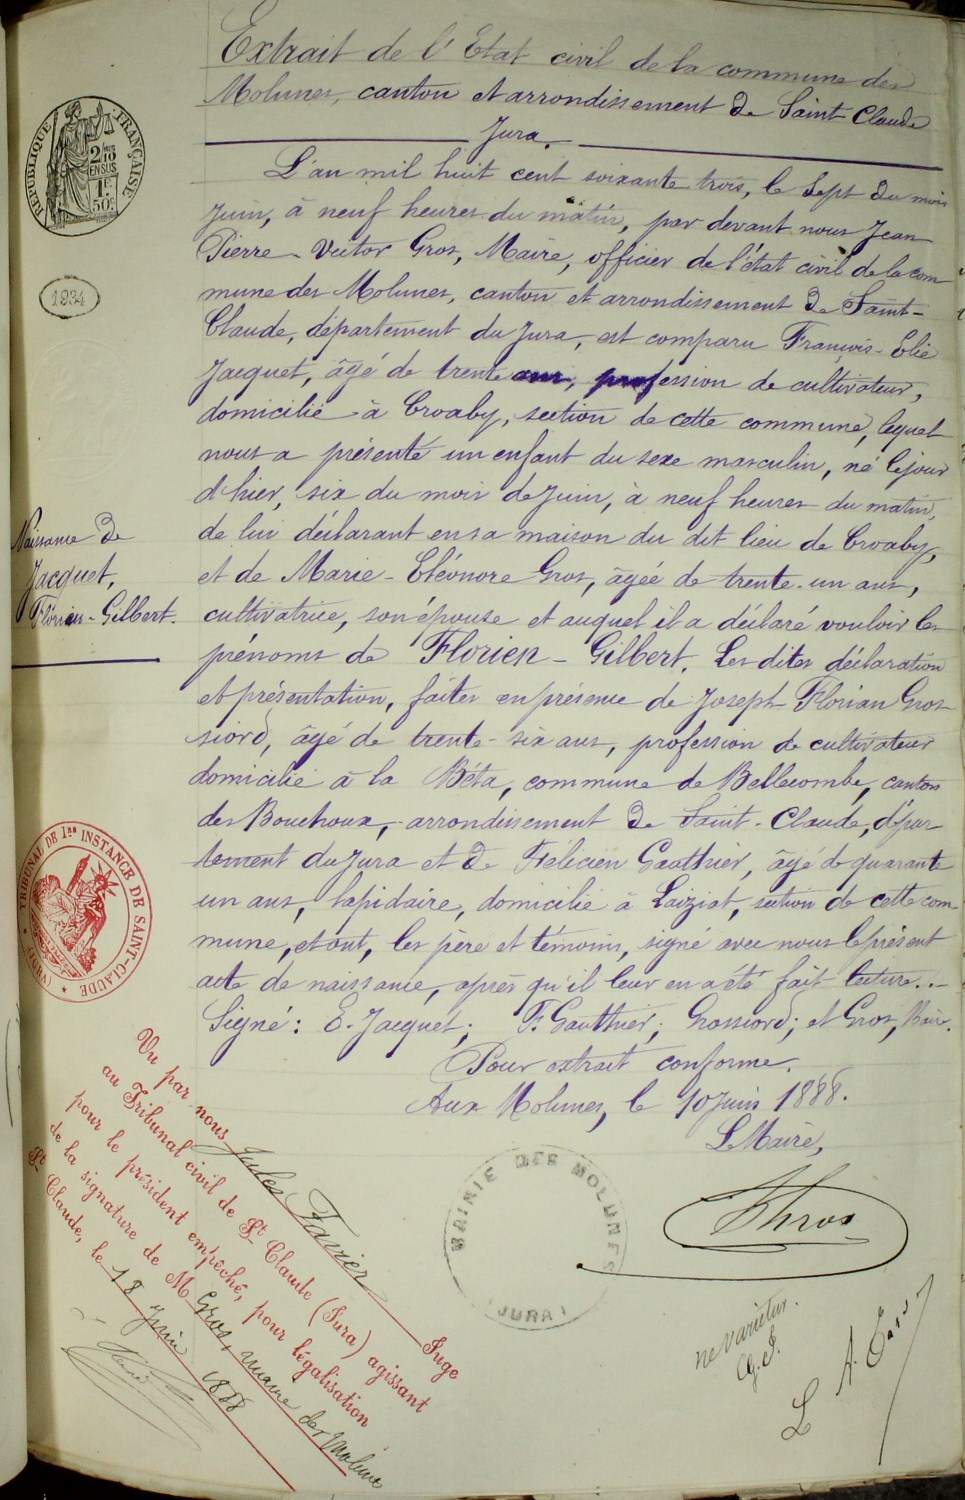 Extrait de l'Etat civil de la commune des
Molunes, canton et arrondissement de Saint-Claude
Jura.
L'an mil huit cent soixante trois, le sept du mois
Juin, à neuf heures du matin, par devant nous Jean
Pierre-Victor Gros, Maire, officier de l'état civil de la com
mune des Molunes, canton et arrondissement de Saint-
Claude, département du Jura, est comparu François-Elie
Jacquet, âgé de trente ans, profession de cultivateur,
domicilié à Croaby, section de cette commune, lequel
nous a présenté un enfant du sexe masculin, né le jour
d'hier, six du mois de Juin, à neuf heures du matin,
de lui déclarant en sa maison du dit lieu de Croaby,
et de Marie-Eléonore Gros, âgée de trente-un ans,
cultivatrice, son épouse et auquel il a déclaré vouloir les
prénoms de Florien-Gilbert. Les dites déclaration
et présentation, faites en présence de Joseph-Florian Gros-
siord, âgé de trente-six ans, profession de cultivateur
domicilié à la Béta, commune de Bellecombe, canton
des Bouchoux, arrondissement de Saint-Claude, dépar
tement du Jura et de Félicien Gauthier, âgé de quarante
un ans, lapidaire, domicilié à Laiziat, section de cette com-
mune, et ont, les père et témoins, signé avec nous le présent
acte de naissance, après qu'il leur en a été fait lecture..-
Signé: E. Jacquet; F. Gauthier; Grossiord; et Gros, Maire.
Pour extrait conforme.
Aux Molunes, le 10 Juin 1888.
Le Maire,
RÉPUBLIQUE FRANÇAISE
2/10
EN SUS
1F
50C
1934
Naissance de
Jacquet,
Florien-Gilbert.
TRIBUNAL DE 1re INSTANCE DE SAINT-CLAUDE (JURA)
Vu par nous Jules Favier Juge
au Tribunal civil de St Claude (Jura) agissant
pour le président empêché, pour légalisation
de la signature de M Gros, maire des Molunes
St Claude, le 18 Juin 1888
MAIRIE DES MOLUNES
(JURA)
ne varietur.